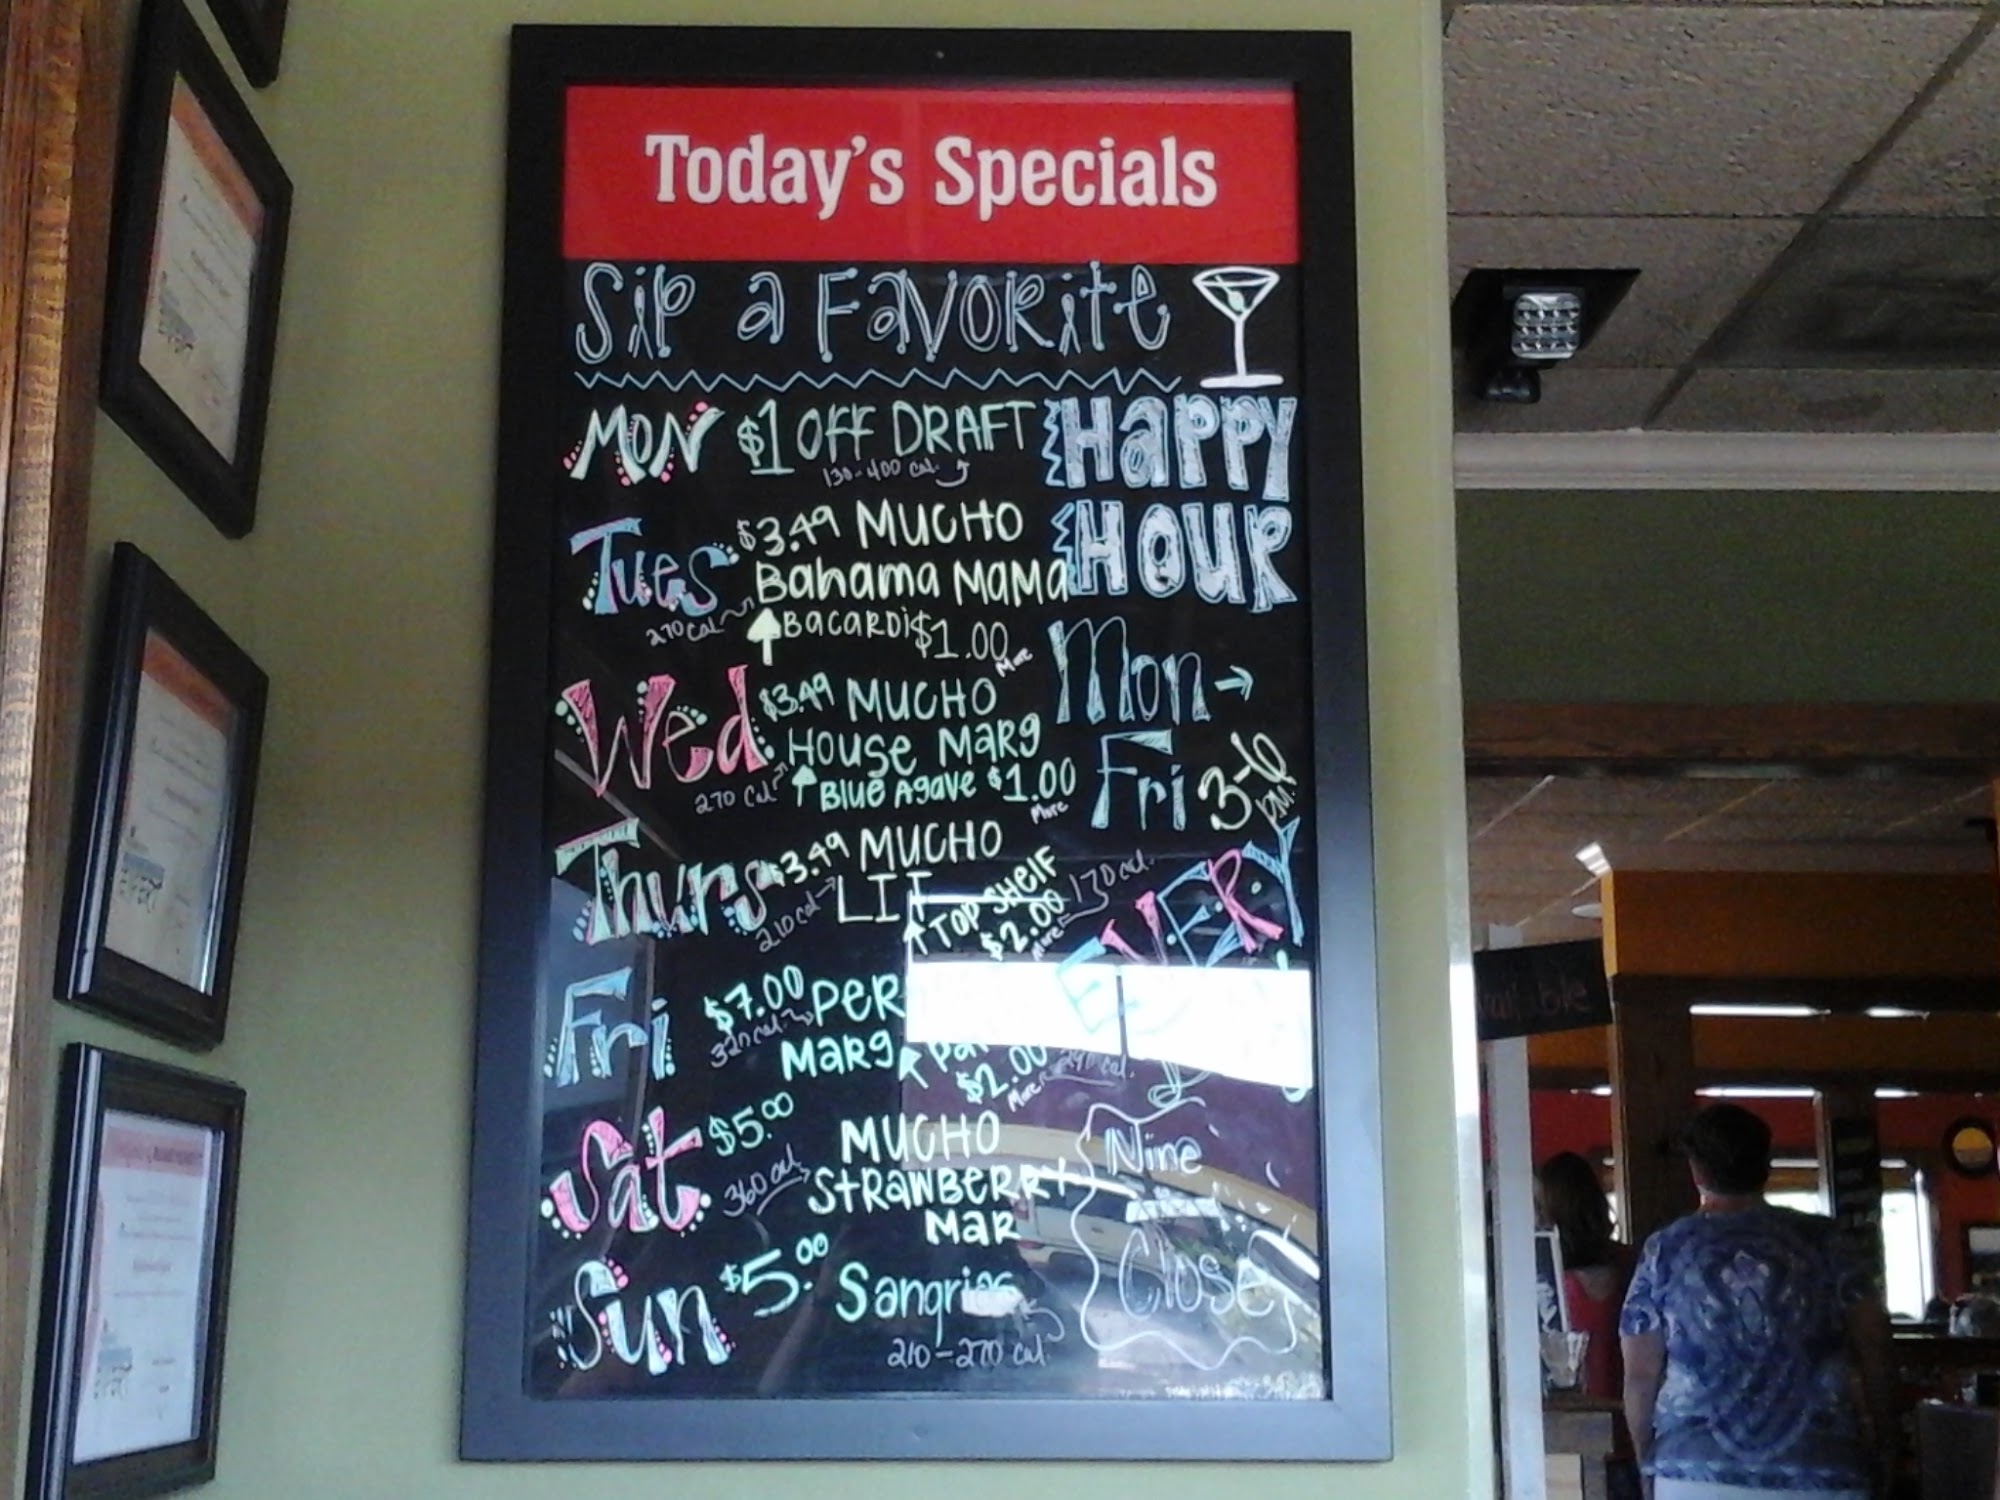 Today's Specials
Sip a Favorite
Mon $1 Off Draft
130-400 cal.
Tues $3.49 Mucho
Bahama Mama
270 cal
Bacardi $1.00
More
Wed $3.49 Mucho
House Marg
270 cal
Blue Agave $1.00
More
Thurs $3.49 Mucho
210 cal LIT
Top Shelf
$2.00
More
170 cal.
Fri $7.00 Per
320 cal.
Marg
$2.00
More
Sat $5.00 Mucho
360 cal
Strawberry
Mar
Sun $5.00 Sangrias
210-270 cal.
Happy
Hour
Mon →
Fri 3-6
P.M.
Every
Nine
Close